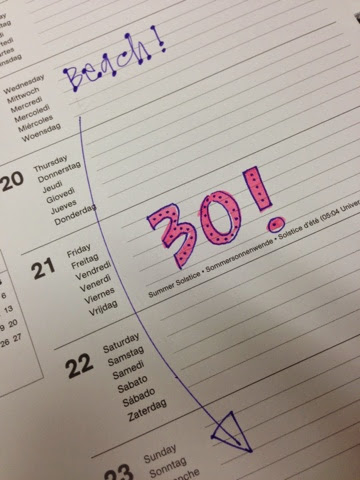 Beach!
Wednesday
Mittwoch
Mercredi
Mercoledì
Miércoles
Woensdag
20
Thursday
Donnerstag
Jeudi
Giovedì
Jueves
Donderdag
30!
21
Friday
Freitag
Vendredi
Venerdì
Viernes
Vrijdag
Summer Solstice • Sommersonnenwende • Solstice d'été (05:04 Univer
22
Saturday
Samstag
Samedi
Sabato
Sábado
Zaterdag
23
Sunday
Sonntag